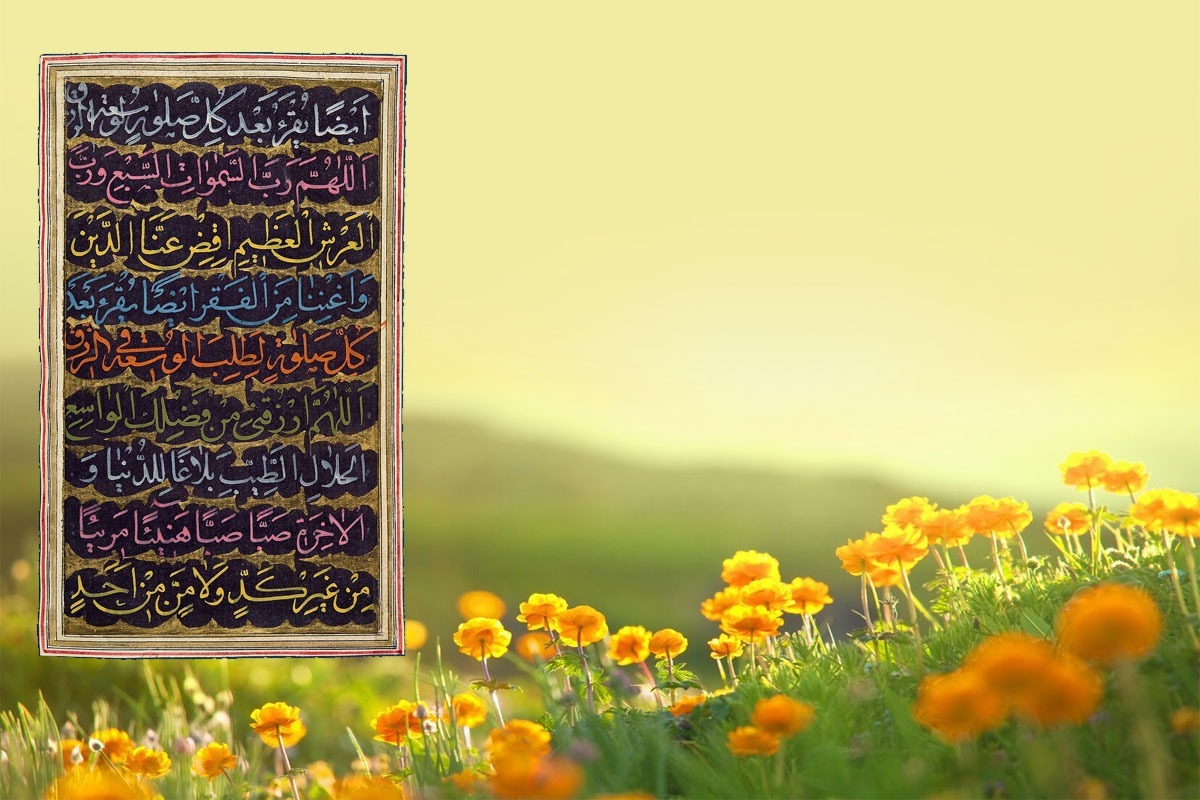 اَيْضًا يُقْرَءُ بَعْد كُلِّ صَلٰوةٍ لوُسْعَةِ الرزق
اَللّٰهُمَّ رَبَّ السَّمٰوَاتِ السَّبْعِ وَرَبَّ
الْعَرْشِ الْعَظِيمِ اِقْضِ عَنَّا الدَّيْنَ
وَاَغْنِنَا مِنَ الْفَقْر اَيْضًا يُقْرَءُ بَعْدَ
كُلِّ صَلٰوةٍ لِطَلَبِ الوُسْعَة في الرزق
اَللّٰهُمَّ ارْزُقْنِي مِنْ فَضْلِكَ الْوَاسِعِ
الْحَلَالِ الطَّيِّبِ بَلَاغًا لِلدُّنْيَا وَ
الاخِرَةِ صَبًّا صَبًّا هَنِيئًا مَرِيئًا
مِنْ غَيْرِ كَدٍّ وَلَا مَنٍّ مِنْ اَحَدٍ